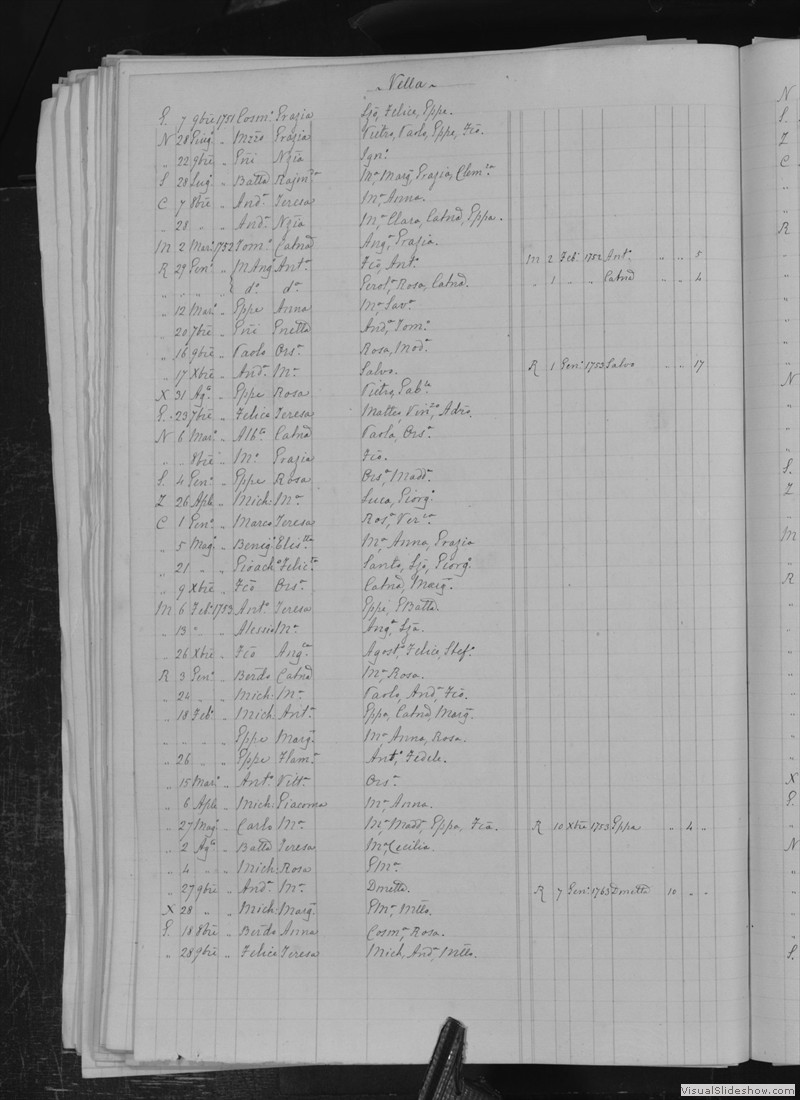 Vella
G. 7 9bre 1751 Cosmo Grazia Ljo, Felice, Eppe.
N 28 Giugo „ Mzzo Grazia Pietro, Paolo, Eppe, Fco.
„ 22 9bre „ Nzia Igno.
S 28 Lugo „ Batta Ma, Marg, Grazia, Clemza.
C 7 8bre „ Anda Teresa Ma, Anna.
„ 28 „ „ Anda Nzia Ma, Clara, Catnd, Eppa.
M 2 Maro 1752 Tomo Catnd Anga, Grazia.
R 29 Geno „ MAngo Anta Fco, Anto M 2 Febo 1752 Anto „ „ 5
„ „ „ „ do da Rosa, Catnd. „ 1 „ „ Catnd „ „ 4
„ 12 Maro „ Eppe Anna Ma, Savo.
„ 20 7bre „ Anda, Tomo
„ 16 9bre „ Paolo Orsa Rosa, Modo.
„ 17 Xbre „ Anda Ma Salvo. R 1 Geno 1753 Salvo „ „ 17
X 31 Ago „ Eppe Rosa Pietro,
G. 23 7bre „ Felice Teresa Matteo, Vinzo, Adro.
N 6 Maro „ Albto Catnd Paola, Orsa
„ „ 8bre „ Mo Grazia Fco.
S. 4 Geno „ Eppe Rosa Orsa, Madda.
Z 26 Aple „ Mich. Ma Luca, Giorgo
C 1 Geno „ Marco Teresa Rosa, Verca.
„ 5 Mago „ Benigo Elistta Ma, Anna, Grazia
„ 21 „ „ Gioacho Felicta Santo, Ljo, Giorgo.
„ 9 Xbre „ Fco Orsa Catnd, Marg.
M 6 Febo 1753 Anto Teresa Eppe, GBatta.
„ 13 „ „ Alessio Ma Anga, Lja.
„ 26 Xbre „ Fco Angca Agosto, Felice, Stefo.
R 3 Geno „ Berdo Catnd Ma, Rosa.
„ 24 „ „ Mich. Ma Paolo, Anda, Fco.
„ 18 Febo „ Mich. Anta Eppa, Catnd, Marg.
„ „ „ „ Eppe Marg. Ma, Anna, Rosa.
„ 26 „ „ Eppe Flama Anto, Fedele.
„ 15 Maro „ Anto Vitta Orsa.
„ 6 Aple „ Mich. Giacoma Ma, Anna.
„ 27 Mago „ Carlo Ma Ma, Madda, Eppa, Fca. R 10 Xbre 1753 Eppa „ 4 „
„ 2 Ago „ Batta Teresa Ma, Cecilia.
„ 4 „ „ Mich. Rosa GMa.
„ 27 9bre „ Anda Ma Dmetta. R 7 Geno 1763 Dmetta 10 „ „
X 28 „ „ Mich. Marg. GMa, Mtto.
G. 18 8bre „ Berdo Anna Cosma, Rosa.
„ 28 9bre „ Felice Teresa Mich, Anda, Mtto.
VisualSlideshow.com